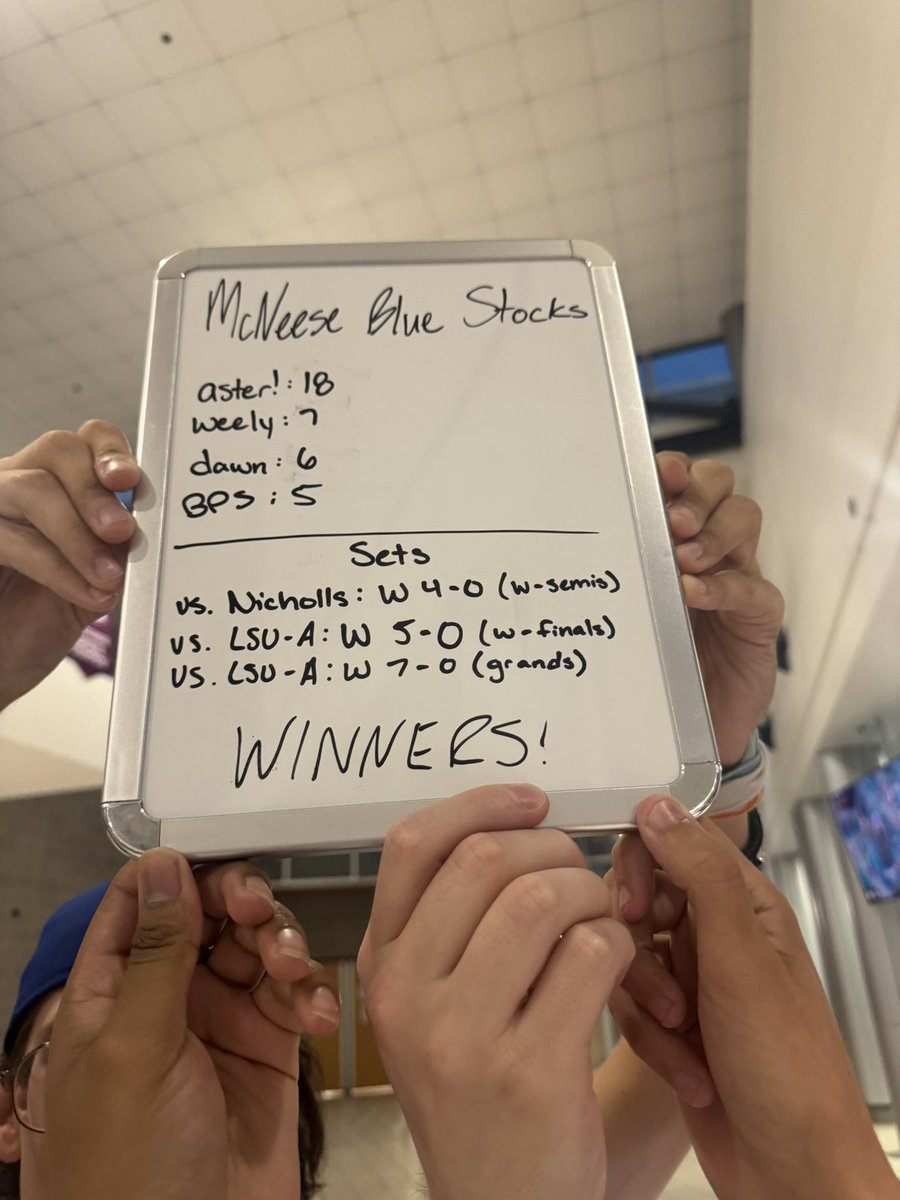 McNeese Blue Stocks
aster! : 18
weely : 7
dawn : 6
BPS : 5
Sets
vs. Nicholls: W 4-0 (w-semis)
vs. LSU-A: W 5-0 (w-finals)
vs. LSU-A: W 7-0 (grands)
WINNERS!